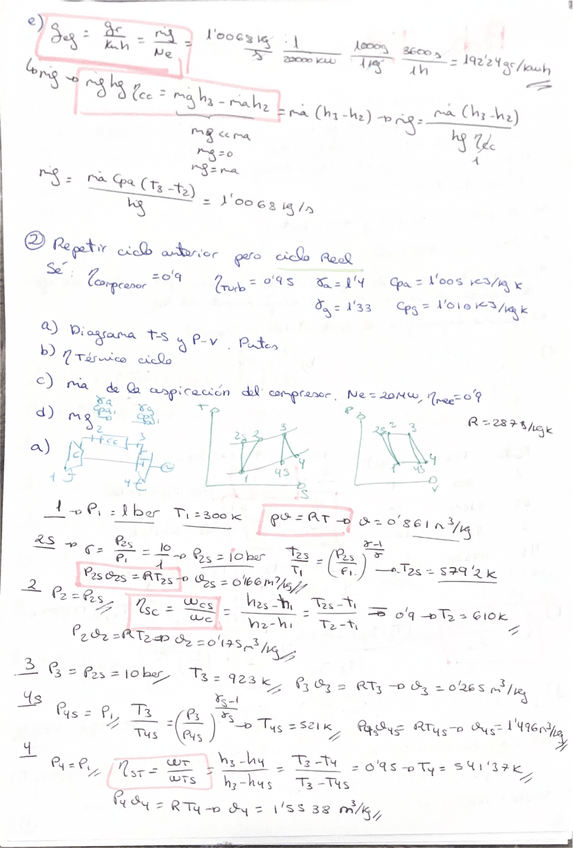 e) geg = gr/kwh = ṁg/Ne = 1'0068 kg/s · 1/20000 kW · 1000g/1kg · 3600s/1h = 192'24 gr/kwh
↳ ṁg → ṁg hg ηcc = ṁg h3 - ṁa h2 = ṁa (h3-h2) → ṁg = ṁa (h3-h2) / hg ηcc
1
mg <<< ma
mg = 0
mg = ma
ṁg = ṁa Cpa (T3-T2) / hg = 1'0068 kg/s
② Repetir ciclo anterior pero ciclo Real
Sé: ηcompresor = 0'9 ηTurb = 0'95 γa = 1'4 Cpa = 1'005 KJ/kg K
γg = 1'33 Cpg = 1'010 KJ/kg K
a) Diagrama T-S y P-V. Puntos
b) η Térmico ciclo
c) ṁa de la aspiración del compresor. Ne = 20MW, ηmec = 0'9
d) ṁg
R = 287 J/kg K
a) 1 2 3 4 C CC T γa Cpa γg Cpg
T 2s 2 3 1 4s 4 S
P 2s 2 3 1 4s 4 V
1 → P1 = 1 bar T1 = 300 K pϑ = RT → ϑ = 0'861 m³/kg
2s → r = P2s/P1 = 10/1 → P2s = 10 bar T2s/T1 = (P2s/P1)^(γ-1/γ) → T2s = 579'2 K
P2s ϑ2s = RT2s → ϑ2s = 0'166 m³/kg
2 P2 = P2s ηsc = ωcs/ωc = h2s - h1 / h2 - h1 = T2s - T1 / T2 - T1 = 0'9 → T2 = 610K
P2 ϑ2 = RT2 → ϑ2 = 0'175 m³/kg
3 P3 = P2s = 10 bar T3 = 923 K P3 ϑ3 = RT3 → ϑ3 = 0'265 m³/kg
4s P4s = P1 T3/T4s = (P3/P4s)^(γg-1/γg) → T4s = 521K P4s ϑ4s = RT4s → ϑ4s = 1'496 m³/kg
4 P4 = P1 ηST = ωT/ωTS = h3 - h4 / h3 - h4s = T3 - T4 / T3 - T4s = 0'95 → T4 = 541'37 K
P4 ϑ4 = RT4 → ϑ4 = 1'5538 m³/kg